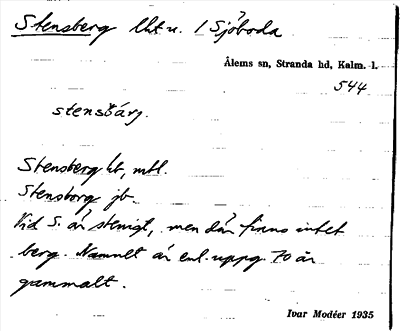 Stensberg lht u. / Sjöboda
Ålems sn, Stranda hd, Kalm. l.
544
stensbärj.
Stensberg ht, mtl.
Stensborg jb
Vid S. är stenigt, men där finns intet
berg. Namnet är enl. uppg. 70 år
gammalt.
Ivar Modéer 1935